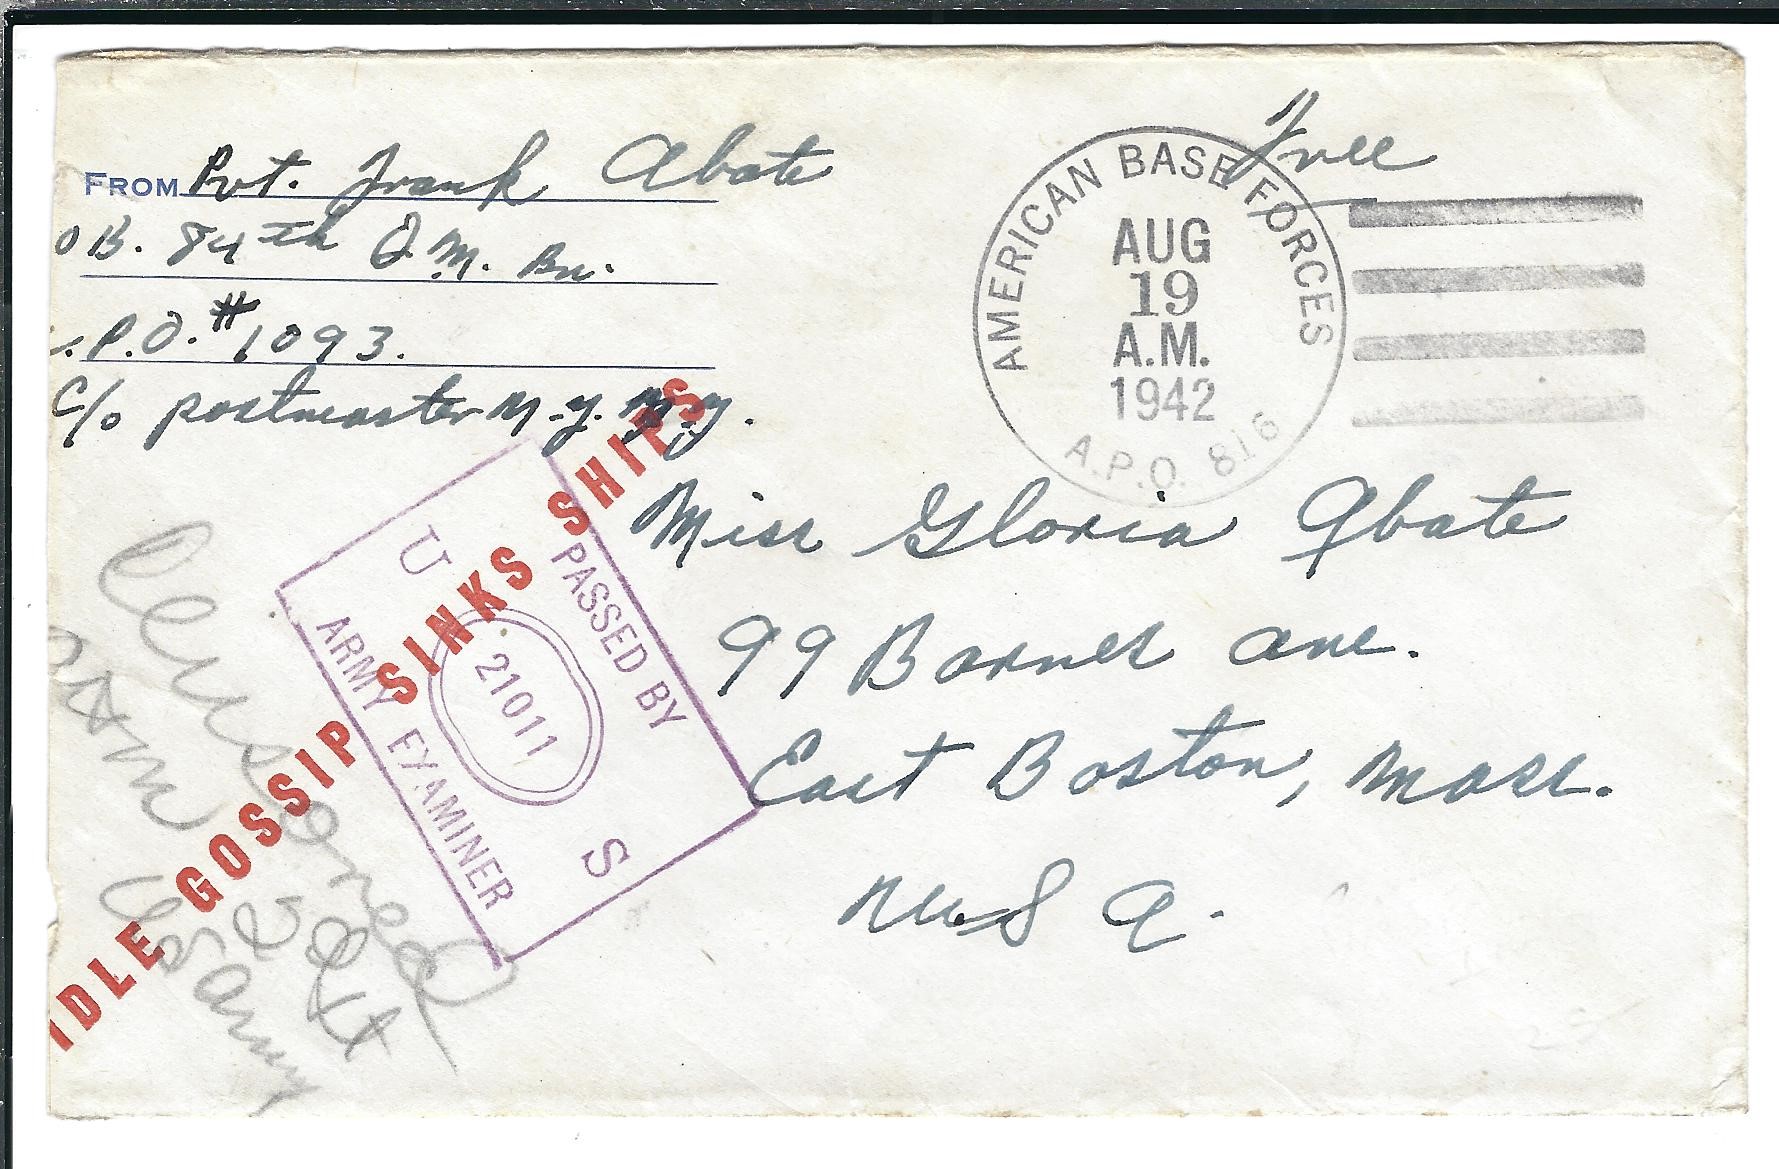 FROM Pvt. Frank Abate
o B. 84th Q.M. Bn.
.P.O. #1093.
c/o postmaster N.Y. N.Y.
Free
AMERICAN BASE FORCES
AUG
19
A.M.
1942
A.P.O. 816
Miss Gloria Abate
99 Barnes Ave.
East Boston, Mass.
U S A.
IDLE GOSSIP SINKS SHIPS
PASSED BY
U 21011 S
ARMY EXAMINER
Censored
2d Lt
US Army